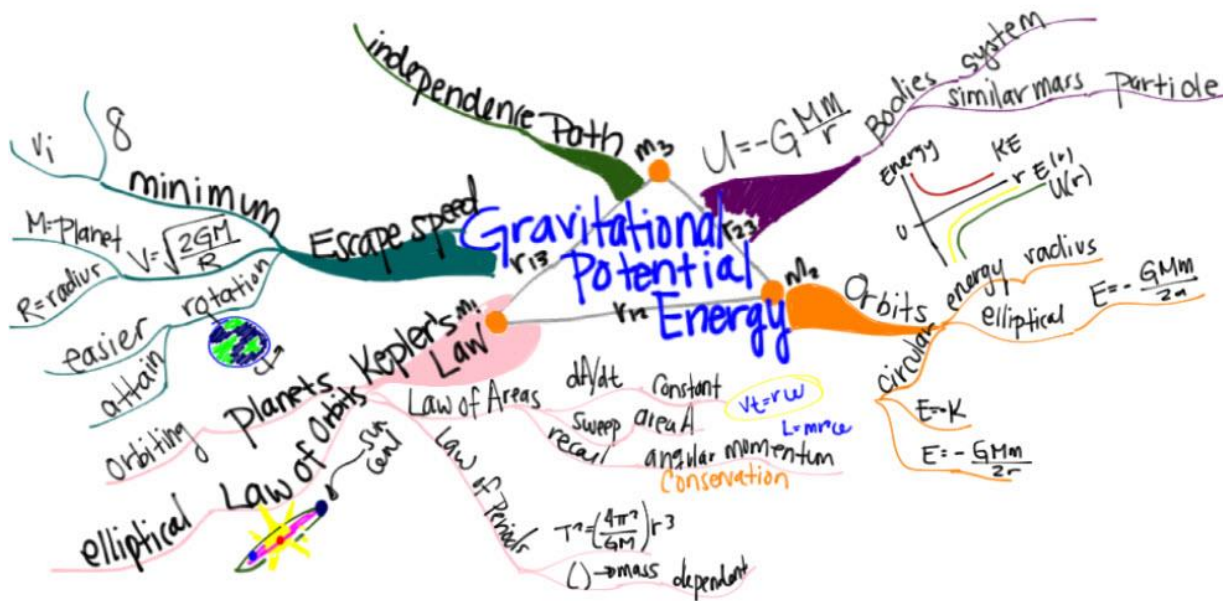 Gravitational
Potential
Energy
m₃
r₁₃
r₂₃
m₁
r₁₂
M₂
independence Path
U=-G Mm/r
Bodies
system
similar mass
particle
Energy
KE
r
E(r)
U(r)
0
Orbits
energy
radius
elliptical
E=-GMm/2a
circular
E=-K
E=-GMm/2r
Escape speed
minimum
Vi
8
V=√(2GM/R)
M=Planet
R=radius
rotation
easier
attain
Kepler's
Law
Planets
orbiting
Law of Orbits
elliptical
sun
Law of Areas
dA/dt
constant
Vt=rω
sweep
area A
L=mr²ω
recall
angular momentum
Conservation
Law of Periods
T²=(4π²/GM)r³
( )→mass dependent